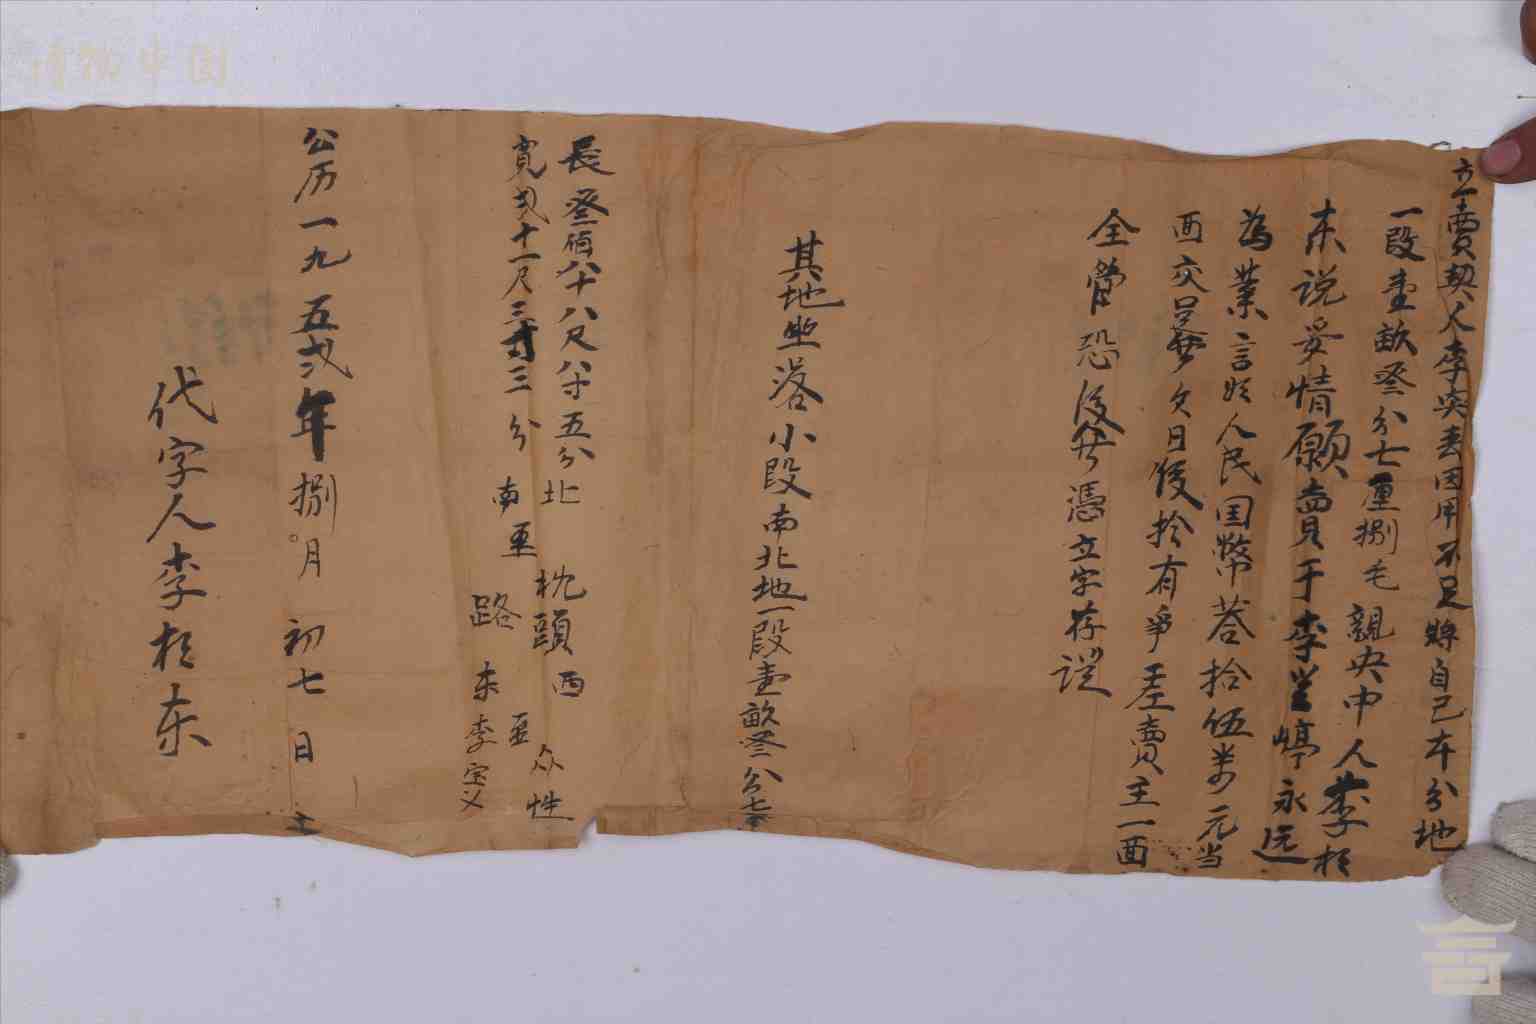 立賣契人李突春因用不足將自己本分地
一段壹畝叁分七厘捌毛親央中人李松
东说妥情願賣于李崑嶂永远
為業言明人民国幣叁拾伍萬元当
面交足無欠日後於有爭差賣主一面
全管恐後無憑立字存證
其地坐落小段南北地一段壹畝叁分七
長叁佰八十八尺八寸五分北枕頭西至众性
寬弍十一尺三寸三分南至路東李宝义
公历一九五弍年捌月初七日立
代字人李松东
博物中国